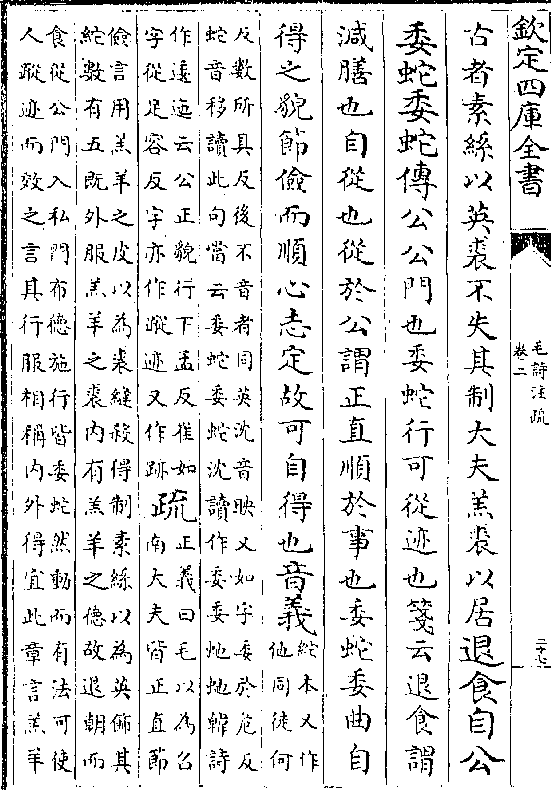 欽定四庫全書
毛詩注疏
卷二
二十七
古者素絲以英裘不失其制大夫羔裘以居退食自公
委蛇委蛇傳公公門也委蛇行可從迹也箋云退食謂
減膳也自從也從於公謂正直順於事也委蛇委曲自
得之貌節儉而順心志定故可自得也音義
紽本又作
他同徒何
反數所具反後不音者同英沈音映又如字委於危反
蛇音移讀此句當云委蛇委蛇沈讀作委委虵虵韓詩
作逶迤云公正貌行下孟反崔如
字從足容反字亦作蹤迹又作跡
疏
正義曰毛以為召
南大夫皆正直節
儉言用羔羊之皮以為裘縫殺得制素絲以為英飾其
紽數有五既外服羔羊之裘內有羔羊之德故退朝而
食從公門入私門布德施行皆委蛇然動而有法可使
人蹤迹而效之言其行服相稱內外得宜此章言羔羊